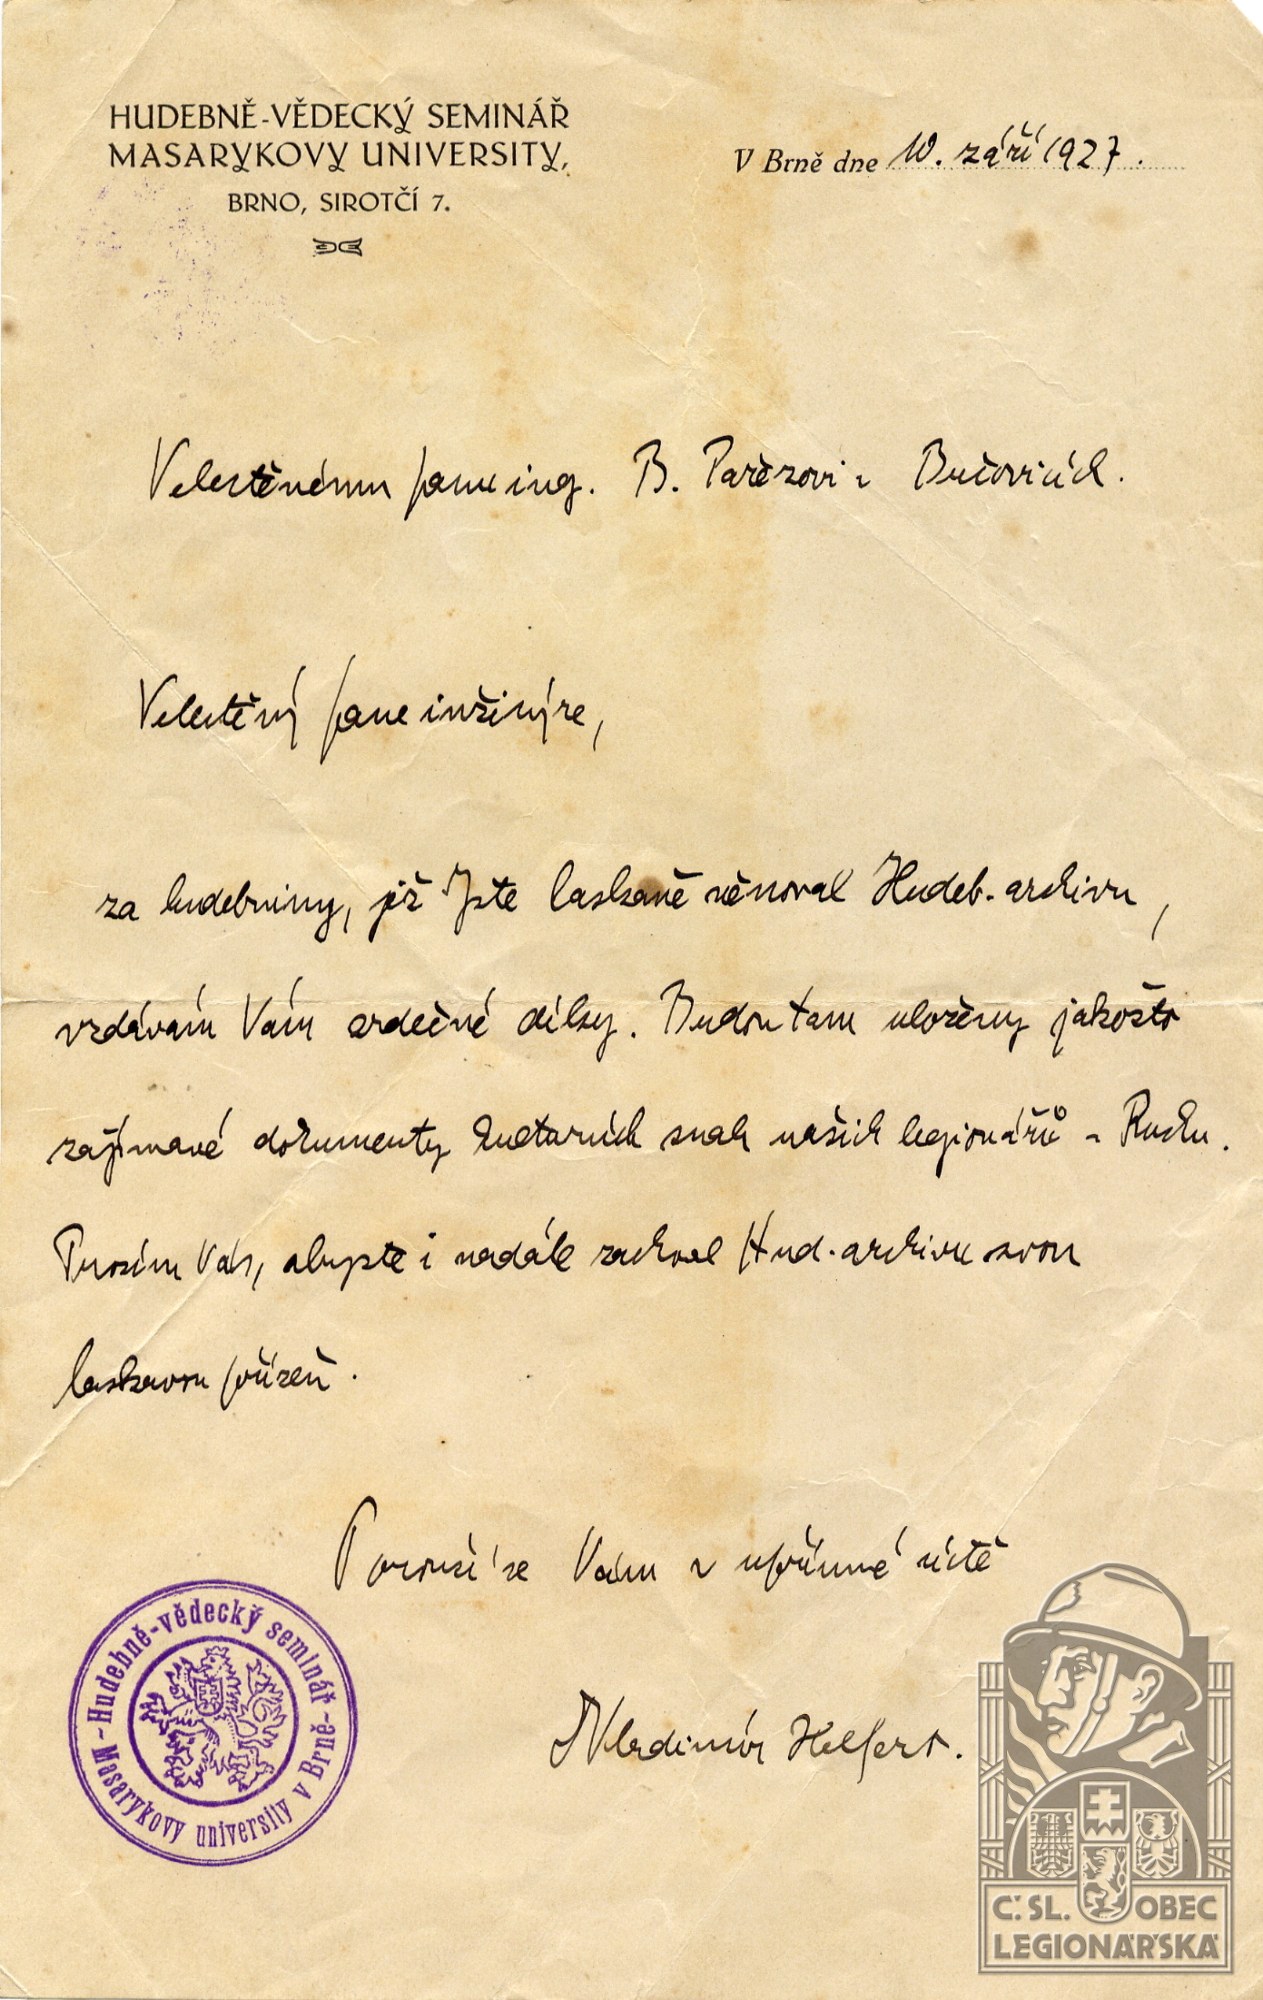 HUDEBNĚ-VĚDECKÝ SEMINÁŘ
MASARYKOVY UNIVERSITY,
BRNO, SIROTČÍ 7.
V Brně dne 10. září 1927.
Velectěnému panu ing. B. Pařezovi v Bučovicích.
Velectěný pane inženýre,
za hudebniny, jež Jste laskavě věnoval Hudeb. archivu,
vzdávám Vám srdečné díky. Budou tam uloženy jakožto
zajímavé dokumenty kulturních snah našich legionářů v Rusku.
Prosím Vás, abyste i nadále zachoval Hud. archivu svou
laskavou přízeň.
Poroučí se Vám v upřímné úctě
Vladimír Helfert.
Hudebně-vědecký seminář
Masarykovy university v Brně
Č.SL. OBEC
LEGIONÁŘSKÁ